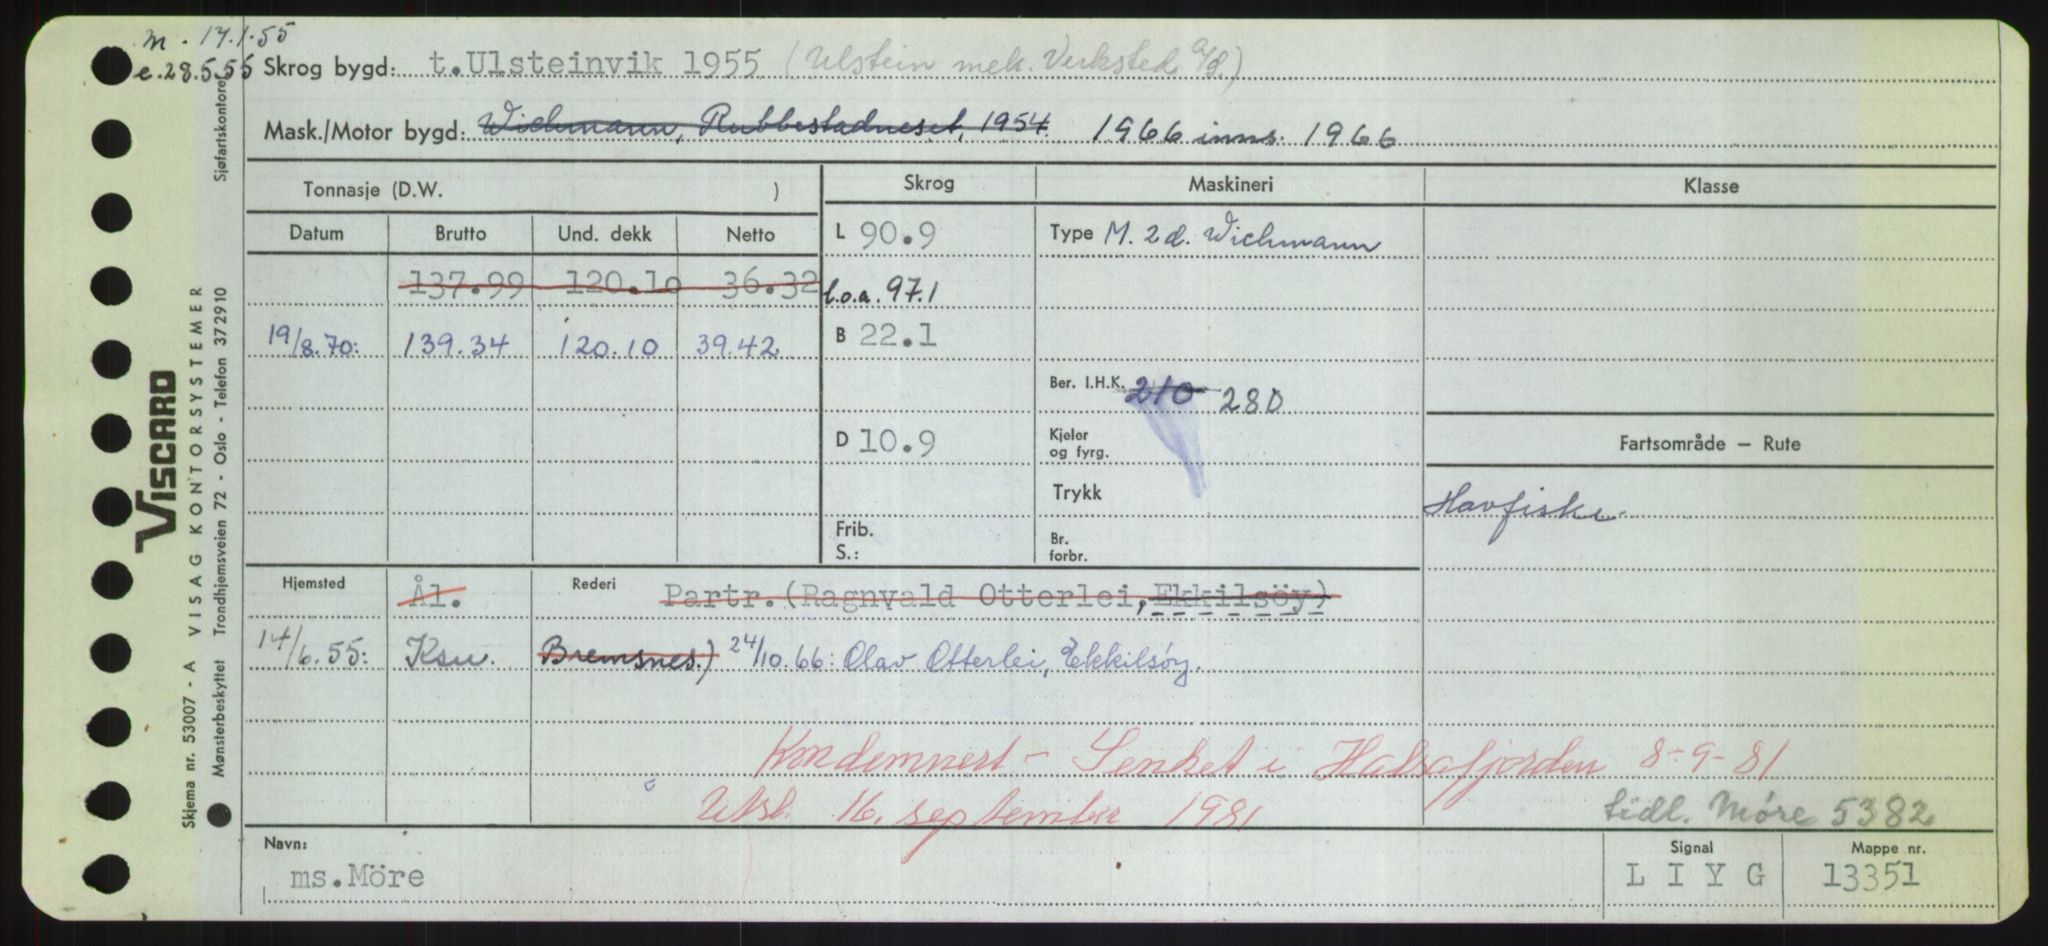 m. 17.1.55
e.28.5.55
Skrog bygd: t.Ulsteinvik 1955 (Ulstein mek. Verksted A/S.)
Mask./Motor bygd: Wichmann, Rubbestadneset, 1954. 1966 inns. 1966
Tonnasje (D.W. )
Skrog
Maskineri
Klasse
Datum Brutto Und. dekk Netto
L 90.9
Type M. 2d. Wichmann
137.99 120.10 36.32
l.o.a. 97.1
19/8.70: 139.34 120.10 39.42
B 22.1
Ber. I.H.K. 210 280
D 10.9
Kjeler
og fyrg.
Fartsområde — Rute
Trykk
Havfiske.
Frib.
S.:
Br.
forbr.
Hjemsted Ål. Rederi Partr.(Ragnvald Otterlei, Ekkilsöy)
14/6.55: Ksu. Bremsnes.) 24/10.66: Olav Otterlei, Ekkilsøy.
Kondemnert - Senket i Halsafjorden 8-9-81
Utsl. 16. september 1981
tidl. Møre 5382
Navn: ms.Möre
Signal L I Y G
Mappe nr. 13351
VISCARD
VISAG KONTORSYSTEMER
Skjema nr. 53007 - A
Mønsterbeskyttet Trondhjemsveien 72 - Oslo - Telefon 372910 Sjøfartskontoret